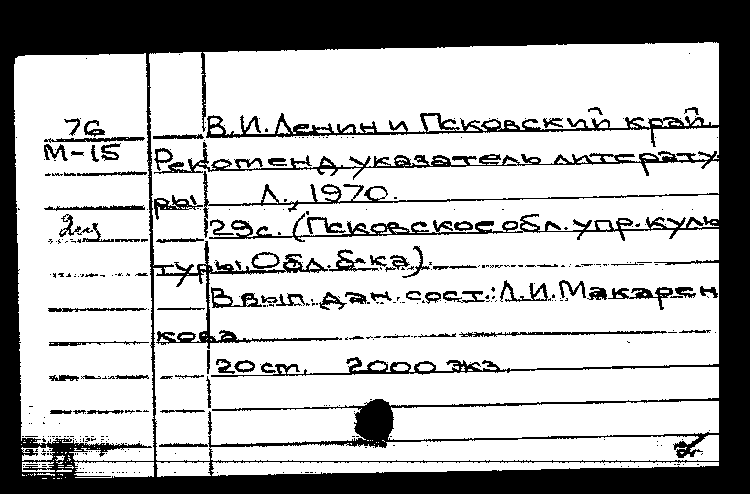 76
В.И.Ленин и Псковский край.
М-15
Рекоменд. указатель литерату-
ры. Л., 1970.
2экз
29с. (Псковское обл. упр. куль
туры. Обл. б-ка).
В вып. дан. сост.: Л.И.Макарен
кова.
20 ст. 2000 экз.